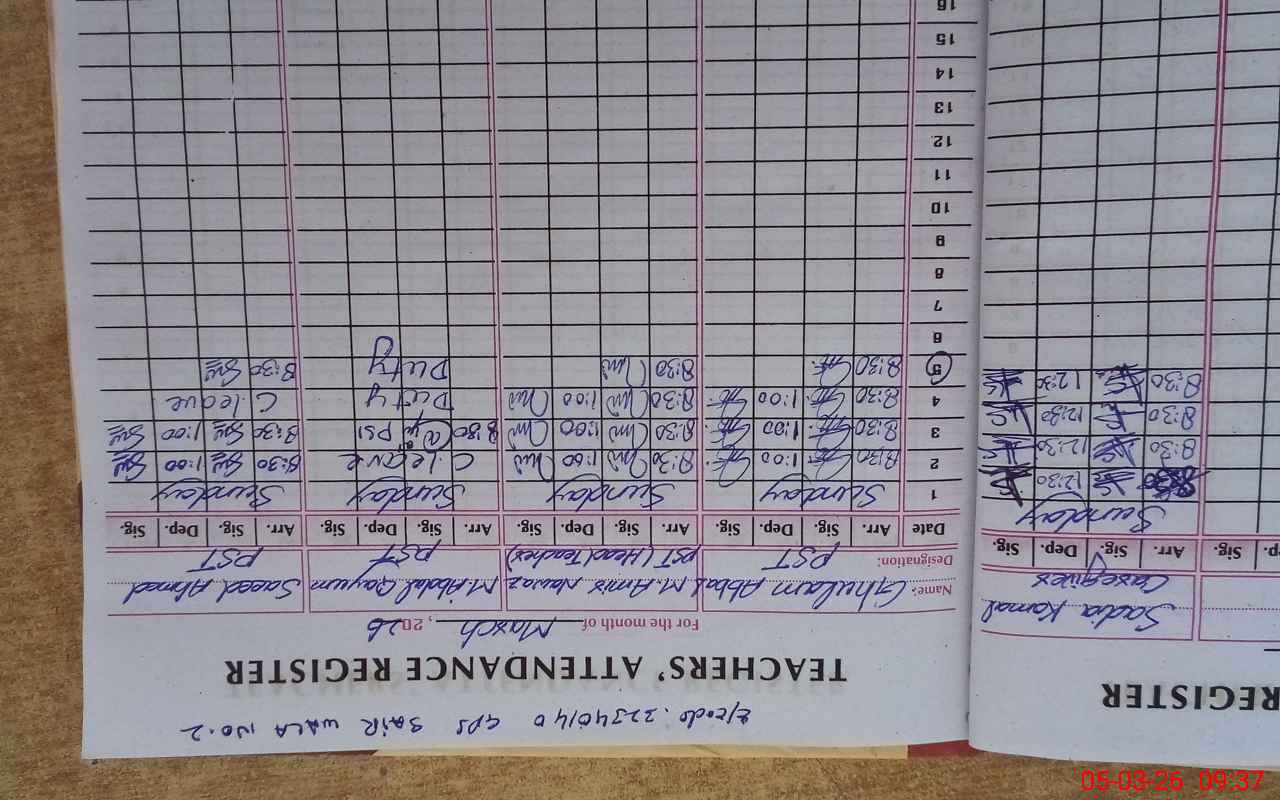 E/code: 32340140 GPS SAIR WALA NO.2
TEACHERS' ATTENDANCE REGISTER
For the month of March, 2026
Name: Ghulam Abbas M. Amir Nawaz M. Abdul Qayyum Saeed Ahmed
Designation: PST PST (Head Teacher) PST PST
Date Arr. Sig. Dep. Sig. Arr. Sig. Dep. Sig. Arr. Sig. Dep. Sig. Arr. Sig. Dep. Sig.
1 Sunday Sunday Sunday Sunday
2 8:30 1:00 8:30 1:00 C. leave 8:30 1:00
3 8:30 1:00 8:30 1:00 8:30 PSI 8:30 1:00
4 8:30 1:00 8:30 1:00 Duty C. leave
5 8:30 8:30 Duty 8:30
6
7
8
9
10
11
12
13
14
15
16
REGISTER
Sadia Kamal
Caregiver
Arr. Sig. Dep. Sig.
Sunday
8:30 12:30
8:30 12:30
8:30 12:30
8:30 12:30
05-03-26 09:37